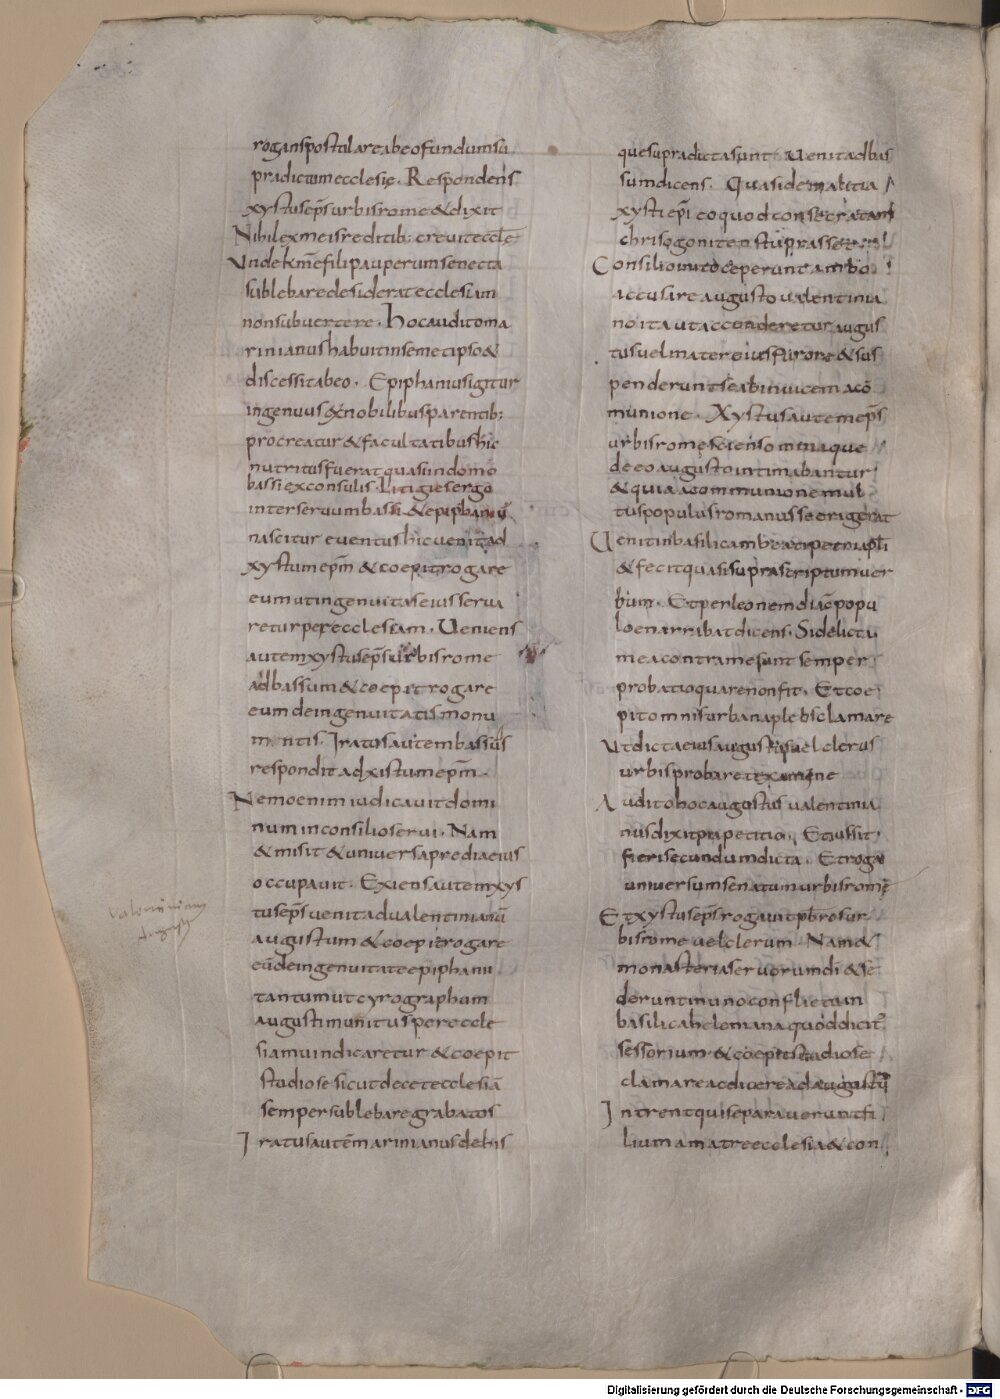 roganspostulartabeofundumsū
pr̄adictumecclesię. Respondens
xystusep̄surbisrome&dixit
Nihilexmeisreditib; creuiteccl̄e
Undek̄mefilipauperumsenecta
subleuaredesideratecclesiam
nonsubuertere. Hocauditoma
rinianushabuitinsemetipso&
discessitabeo. Epiphaniusigitur
ingenuus&nobilibusparentib;
procreatur&facultatibushic
nutritusfueratquasiindomo
bassiexconsulis. Litigiesergo
interseruumbassi&epiphaniū
nascitur euentushicuenitad
xystumep̄m &coepitrogare
eumutingenuitaseiusserua
returperecclesiam. Ueniens
autemxystusep̄surbisrome
adbassum&coepitrogare
eumdeingenuitatismonu
mentis. Iratusautembassus
responditadxistumep̄m.
Nemoenimiudicauitdomi
numinconsilioserui. Nam
&misit&uniuersaprediaeius
occupauit. Exiensautemxys
tusep̄suenitadualentinianū
augustum&coepitrogare
eūdeingenuitateepiphanii
tantumutcyrographum
augustimunitusperecle
siamuindicaretur&coepit
studiosesicutdecetecclesiā
semper subleuaregrabatos
Iratusautēmarinianusdehis
quesupradictasunt. Uenitadbas
sumdicens. Quasidemalitia
xystiep̄i eoquodconsecratam
chrisogonitenstuprasset
Consilioinitoceperuntambo
accusareaugustoualentinia
noitautaccenderetur augus
tusuelmatereiusfurore&sus
penderuntseabinuicemacō
munione. Xystusautemep̄s
urbisromesciensomniaque
deeoaugustointimabantur
&quiaacommunionemul
tuspopulusromanusseerigerat
Uenitinbasilicambeatipetriapl̄i
&fecitquasisuprascriptumuer
bum. Etperleonemdiac̄popu
loenarrabatdicens. Sidelicta
meacontramesuntsemper
probatioquarenonfit. Etcoe
pitomnisurbanaplebsclamare
Utdictaeiusaugustusuelclerus
urbisprobaretexamine
Auditohocaugustusualentinia
nusdixitpiapetitio. Etiussit
fierisecundumdicta. Etroga
uniuersumsenatumurbisromę
Etxystusep̄srogauitpb̄rosur
bisromeuelclerum. Nam&
monasteriaseruorumdī&se
deruntinunoconflictum
basilicahelemanaquoddicit̄
sessorium.&coepitstudiose
clamareacdiceread augustū
Intrentquiseparaueruntfi
liumamatreecclesia&con